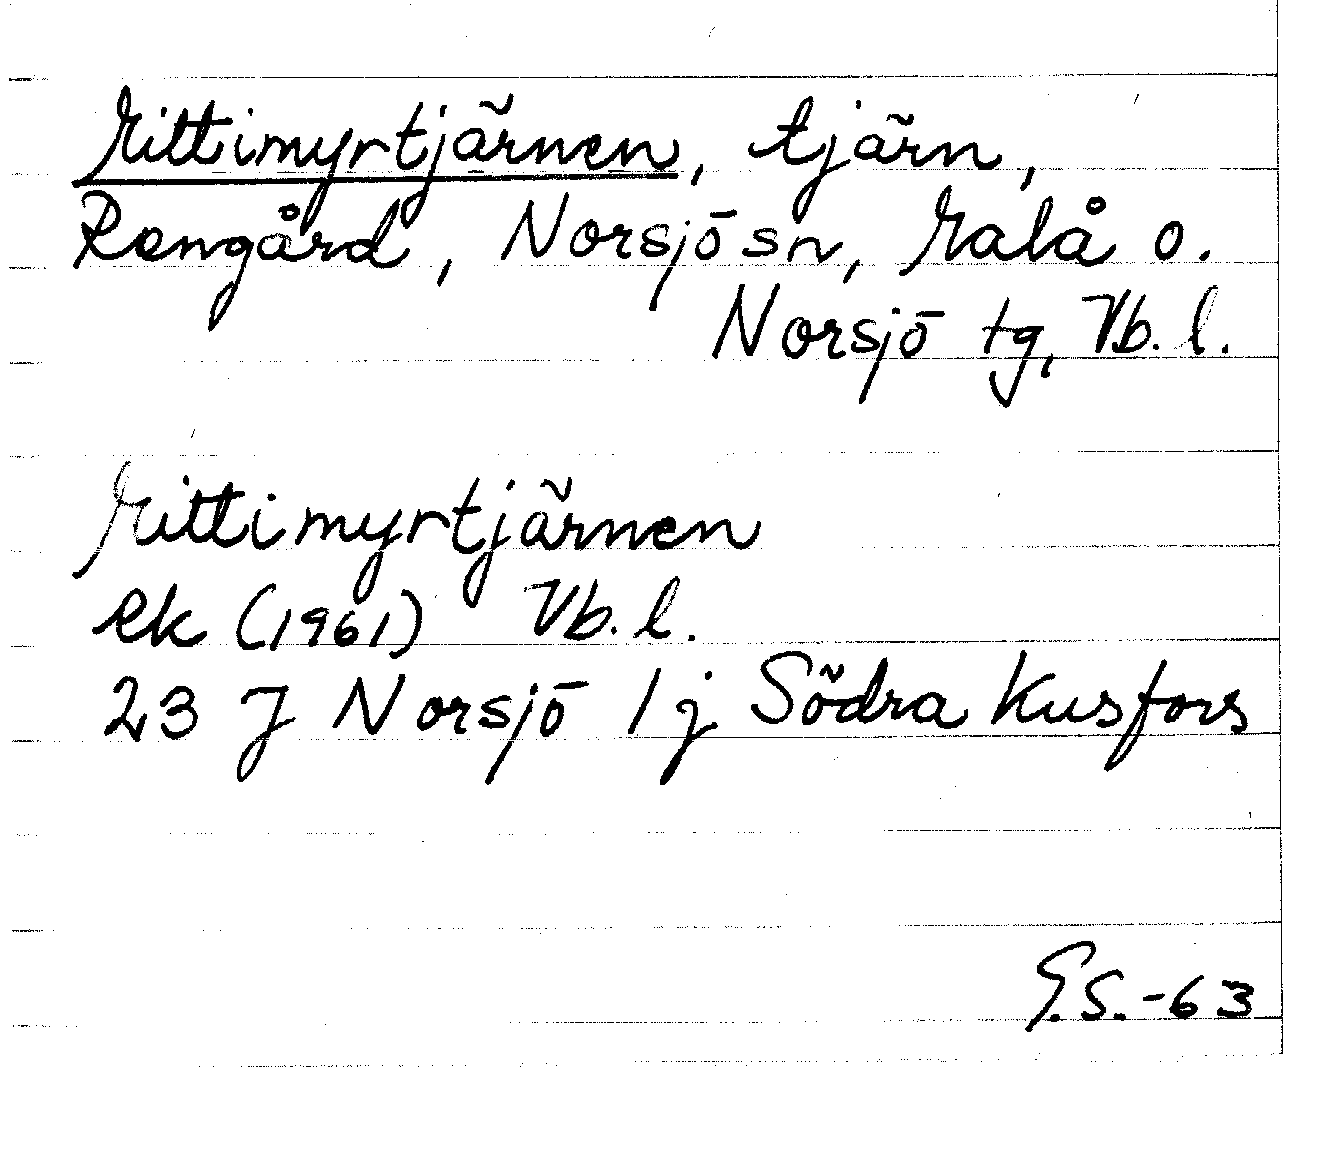 Mittimyrtjärnen, tjärn,
Rengård, Norsjö sn, Malå o.
Norsjö tg, Vb. l.
Mittimyrtjärnen
ek (1961) Vb. l.
23 J Norsjö 1 j Södra Kusfors
G.S.-63